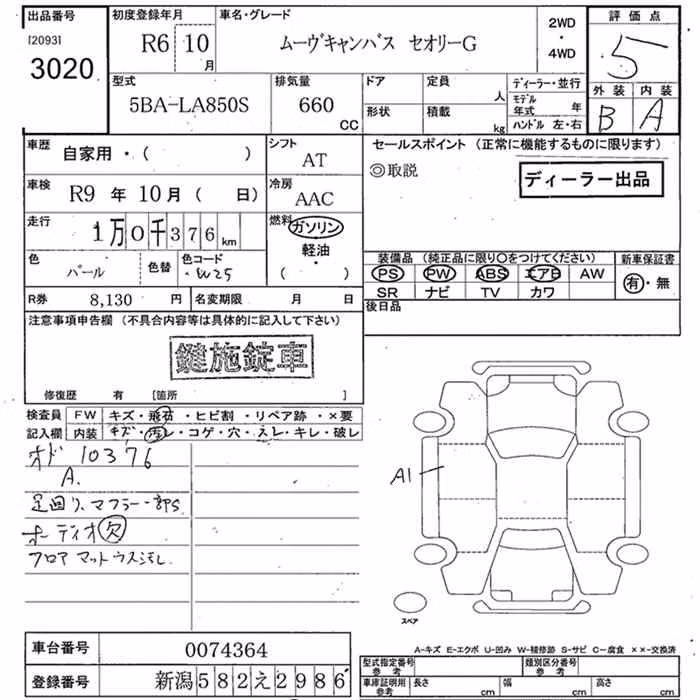 出品番号 初度登録年月 車名・グレード 2WD ・ 4WD 評価点
[2093]
3020 R6 10月 ムーヴキャンバス セオリーG 5
型式 排気量 ドア 定員 人 ディーラー・並行 外装 内装
5BA-LA850S 660 CC 形状 積載 kg モデル 年 B A
ハンドル 左・右
車歴 自家用・( ) シフト AT セールスポイント (正常に機能するものに限ります)
◎取説 ディーラー出品
車検 R9 年 10 月 ( 日) 冷房 AAC
走行 1万0千376km 燃料 ガソリン
軽油
・
( )
色 パール 色替 色コード W25
装備品 (純正品に限り○をつけてください) 新車保証書
PS PW ABS エアB AW 有・無
SR ナビ TV カワ
R券 8,130 円 名変期限 月 日 後日品
注意事項申告欄 (不具合内容等は具体的に記入して下さい)
鍵施錠車
修復歴 有 [箇所 ]
検査員 FW キズ・飛石・ヒビ割・リペア跡・×要
記入欄 内装 キズ・汚レ・コゲ・穴・スレ・キレ・破レ
オド 10376
A.
足回り、マフラー一部S
オーディオ欠
フロアマットウス汚し
A1
スペア
A-キズ E-エクボ U-凹み W-補修跡 S-サビ C-腐食 ××-交換済
車台番号 0074364
型式指定番号 参考 類別区分番号 参考
登録番号 新潟582え2986
車庫証明用 参考 長さ cm 幅 cm 高さ cm